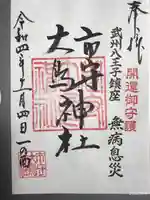 奉拝
開運御守護
武州八王子鎮座
無病息災
市守神社
大鳥神社
令和四年十一月四日